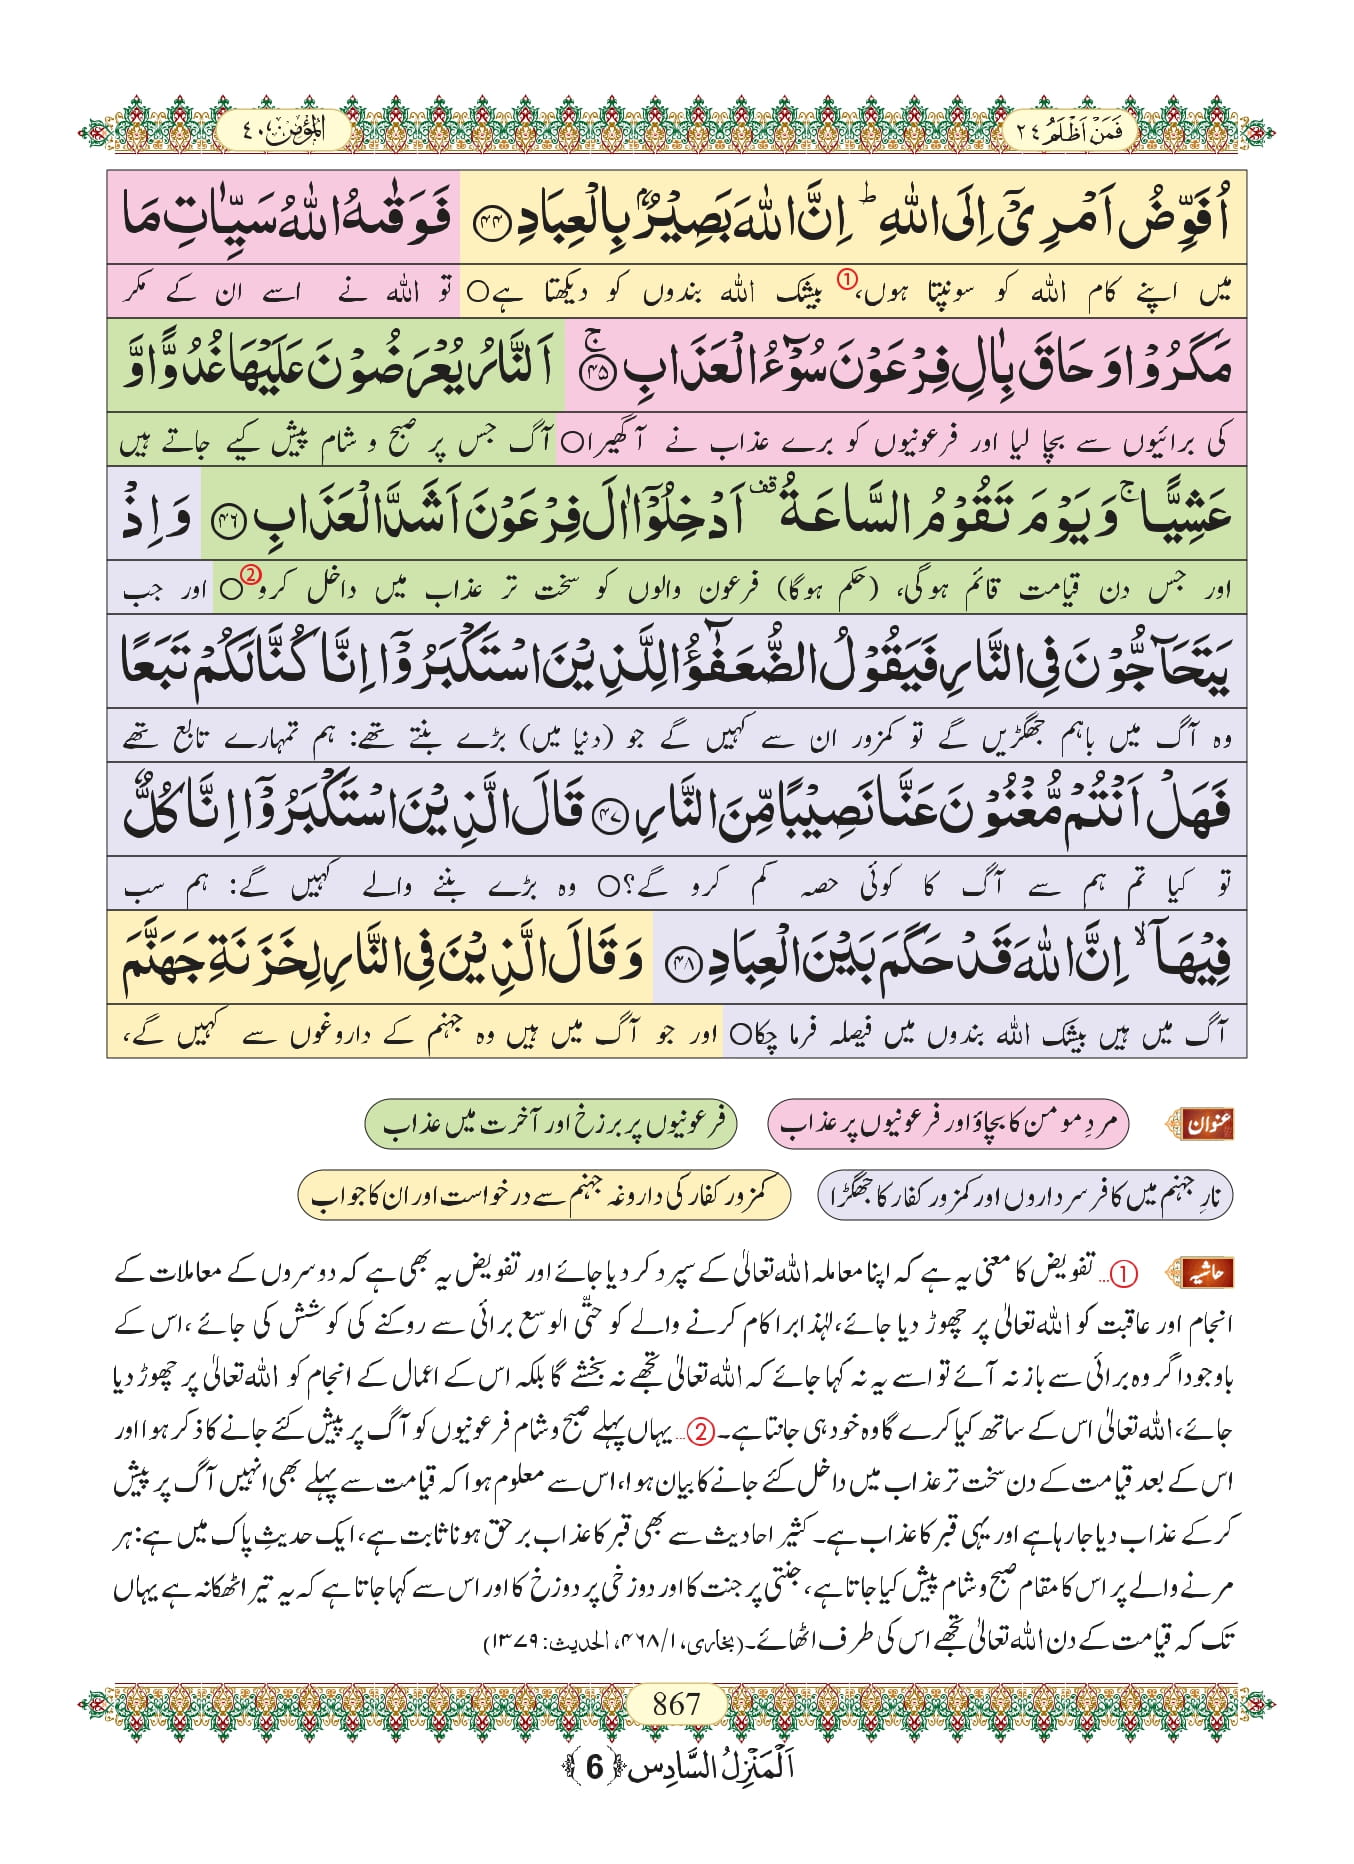 فَمَنْ اَظْلَمُ ٢٤
المؤمن ٤٠
اُفَوِّضُ اَمْرِیْۤ اِلَى اللّٰهِ ؕ اِنَّ اللّٰهَ بَصِیْرٌۢ بِالْعِبَادِ ﴿۴۴﴾ فَوَقٰىهُ اللّٰهُ سَیِّاٰتِ مَا
میں اپنے کام اللہ کو سونپتا ہوں،① بیشک اللہ بندوں کو دیکھتا ہے○ تو اللہ نے اسے ان کے مکر
مَكَرُوْا وَ حَاقَ بِاٰلِ فِرْعَوْنَ سُوْٓءُ الْعَذَابِ ﴿۴۵﴾ۚ اَلنَّارُ یُعْرَضُوْنَ عَلَیْهَا غُدُوًّا وَّ
کی برائیوں سے بچا لیا اور فرعونیوں کو برے عذاب نے آ گھیرا○ آگ جس پر صبح و شام پیش کیے جاتے ہیں
عَشِیًّا ۚ وَ یَوْمَ تَقُوْمُ السَّاعَةُ ۫ اَدْخِلُوْۤا اٰلَ فِرْعَوْنَ اَشَدَّ الْعَذَابِ ﴿۴۶﴾ وَ اِذْ
اور جس دن قیامت قائم ہوگی، (حکم ہوگا) فرعون والوں کو سخت تر عذاب میں داخل کرو②○ اور جب
یَتَحَآجُّوْنَ فِی النَّارِ فَیَقُوْلُ الضُّعَفٰٓؤُا لِلَّذِیْنَ اسْتَكْبَرُوْۤا اِنَّا كُنَّا لَكُمْ تَبَعًا
وہ آگ میں باہم جھگڑیں گے تو کمزور ان سے کہیں گے جو (دنیا میں) بڑے بنتے تھے: ہم تمہارے تابع تھے
فَهَلْ اَنْتُمْ مُّغْنُوْنَ عَنَّا نَصِیْبًا مِّنَ النَّارِ ﴿۴۷﴾ قَالَ الَّذِیْنَ اسْتَكْبَرُوْۤا اِنَّا كُلٌّ
تو کیا تم ہم سے آگ کا کوئی حصہ کم کرو گے؟○ وہ بڑے بننے والے کہیں گے: ہم سب
فِیْهَاۤ ۙ اِنَّ اللّٰهَ قَدْ حَكَمَ بَیْنَ الْعِبَادِ ﴿۴۸﴾ وَ قَالَ الَّذِیْنَ فِی النَّارِ لِخَزَنَةِ جَهَنَّمَ
آگ میں ہیں بیشک اللہ بندوں میں فیصلہ فرما چکا○ اور جو آگ میں ہیں وہ جہنم کے داروغوں سے کہیں گے،
عنوان مردِ مومن کا بچاؤ اور فرعونیوں پر عذاب فرعونیوں پر برزخ اور آخرت میں عذاب
نارِ جہنم میں کافر سرداروں اور کمزور کفار کا جھگڑا کمزور کفار کی داروغہ جہنم سے درخواست اور ان کا جواب
حاشیہ ①... تفویض کا معنی یہ ہے کہ اپنا معاملہ اللہ تعالیٰ کے سپرد کر دیا جائے اور تفویض یہ بھی ہے کہ دوسروں کے معاملات کے
انجام اور عاقبت کو اللہ تعالیٰ پر چھوڑ دیا جائے، لہٰذا برا کام کرنے والے کو حتّی الوسع برائی سے روکنے کی کوشش کی جائے، اس کے
باوجود اگر وہ برائی سے باز نہ آئے تو اسے یہ نہ کہا جائے کہ اللہ تعالیٰ تجھے نہ بخشے گا بلکہ اس کے اعمال کے انجام کو اللہ تعالیٰ پر چھوڑ دیا
جائے، اللہ تعالیٰ اس کے ساتھ کیا کرے گا وہ خود ہی جانتا ہے۔ ②... یہاں پہلے صبح و شام فرعونیوں کو آگ پر پیش کئے جانے کا ذکر ہوا اور
اس کے بعد قیامت کے دن سخت تر عذاب میں داخل کئے جانے کا بیان ہوا، اس سے معلوم ہوا کہ قیامت سے پہلے بھی انہیں آگ پر پیش
کر کے عذاب دیا جا رہا ہے اور یہی قبر کا عذاب ہے۔ کثیر احادیث سے بھی قبر کا عذاب برحق ہونا ثابت ہے، ایک حدیثِ پاک میں ہے: ہر
مرنے والے پر اس کا مقام صبح و شام پیش کیا جاتا ہے، جنتی پر جنت کا اور دوزخی پر دوزخ کا اور اس سے کہا جاتا ہے کہ یہ تیرا ٹھکانہ ہے یہاں
تک کہ قیامت کے دن اللہ تعالیٰ تجھے اس کی طرف اٹھائے۔ (بخاری، ١/٤٦٨، الحدیث: ١٣٧٩)
867
اَلْمَنْزِلُ السَّادِس ﴿6﴾